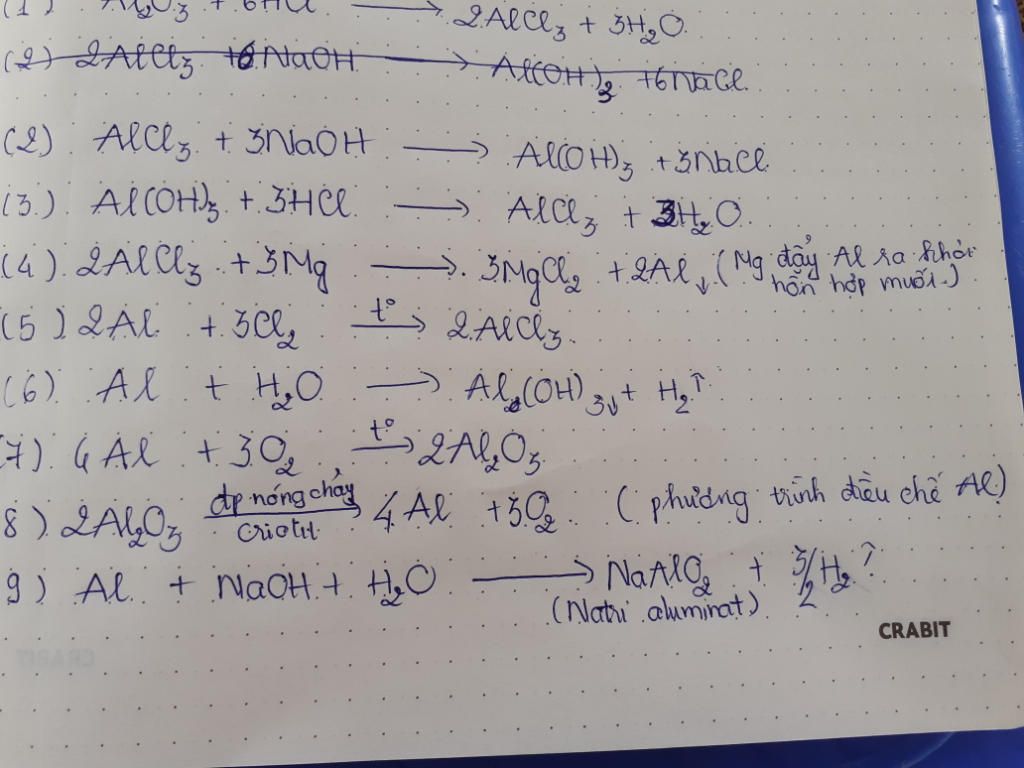 (1) Al₂O₃ + 6HCl ⟶ 2AlCl₃ + 3H₂O.
(2) 2AlCl₃ + 6NaOH ⟶ Al(OH)₃ + 6NaCl.
(2) AlCl₃ + 3NaOH ⟶ Al(OH)₃ + 3NaCl
(3) Al(OH)₃ + 3HCl ⟶ AlCl₃ + 3H₂O.
(4) 2AlCl₃ + 3Mg ⟶ 3MgCl₂ + 2Al↓ (Mg đẩy Al ra khỏi
hỗn hợp muối.)
(5) 2Al + 3Cl₂ t° ⟶ 2AlCl₃.
(6) Al + H₂O ⟶ Al(OH)₃↓ + H₂↑
(7) 4Al + 3O₂ t° ⟶ 2Al₂O₃
8) 2Al₂O₃ đp nóng chảy ⟶ criolit 4Al + 3O₂ (phương trình điều chế Al)
9) Al + NaOH + H₂O ⟶ NaAlO₂ + 3/2 H₂↑
(Natri aluminat)
CRABIT